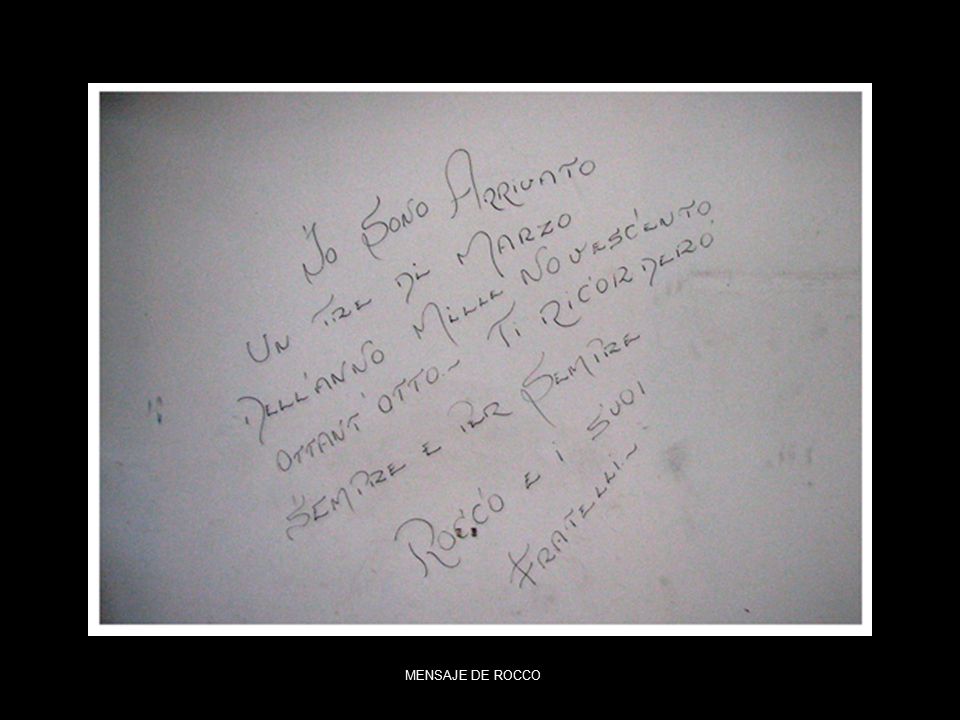 Io Sono Arrivato
Un Tre di Marzo
Dell'anno Mille Novescento
Ottant'otto.~ Ti Ricorderó
Sempre e per Sempre
Rocco e i suoi
Fratelli.~
MENSAJE DE ROCCO